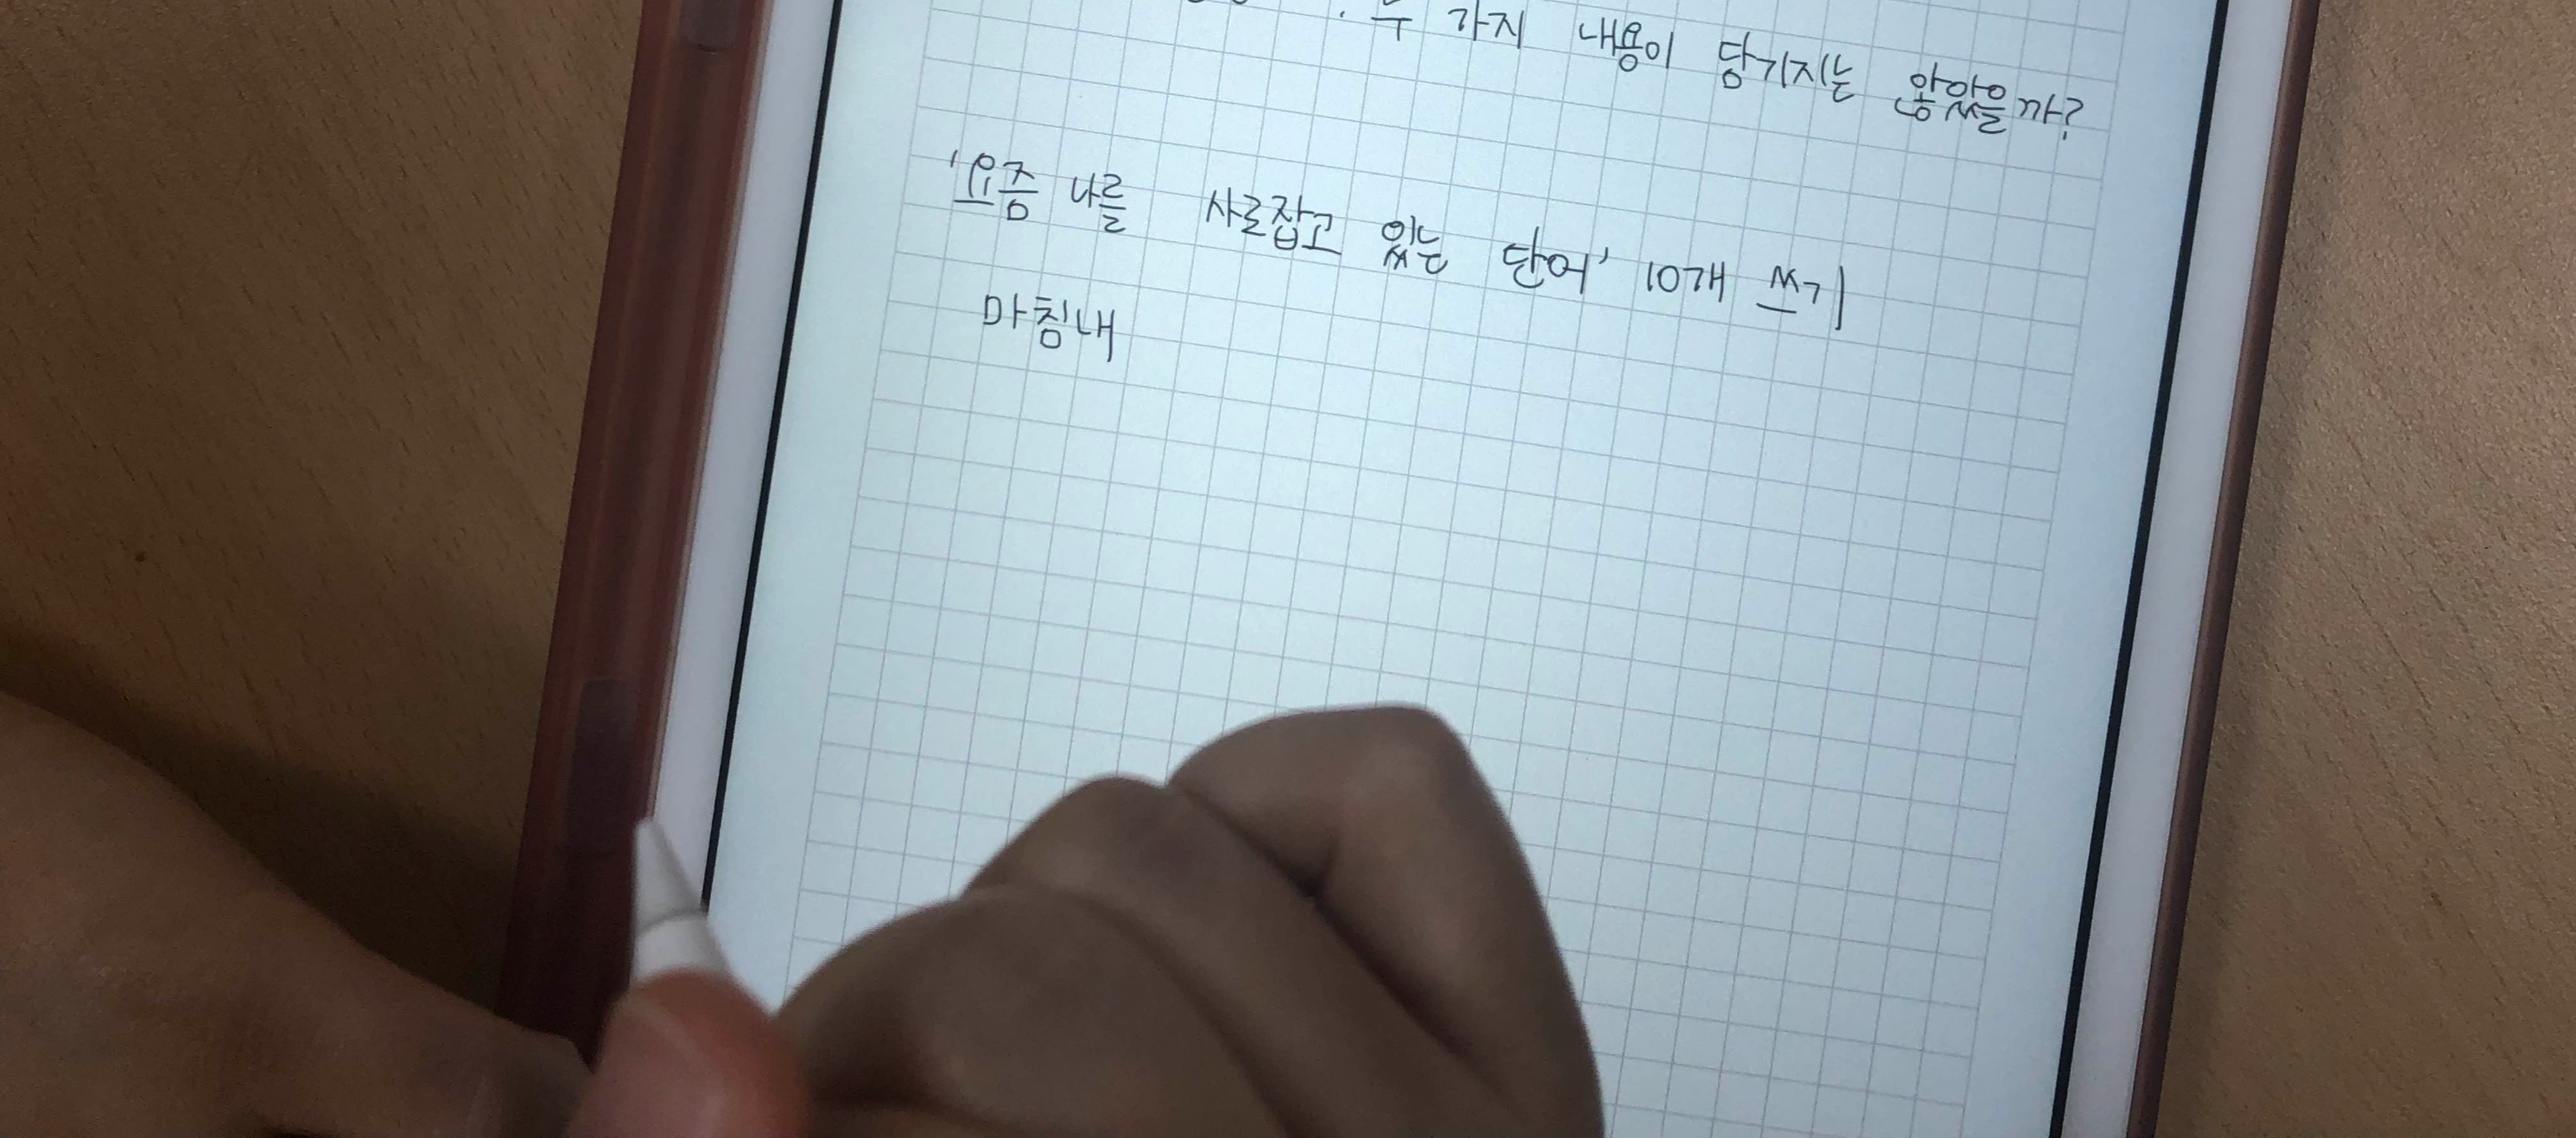 두 가지 내용이 담기지는 않았을까?
'요즘 나를 사로잡고 있는 단어' 10개 쓰기
마침내